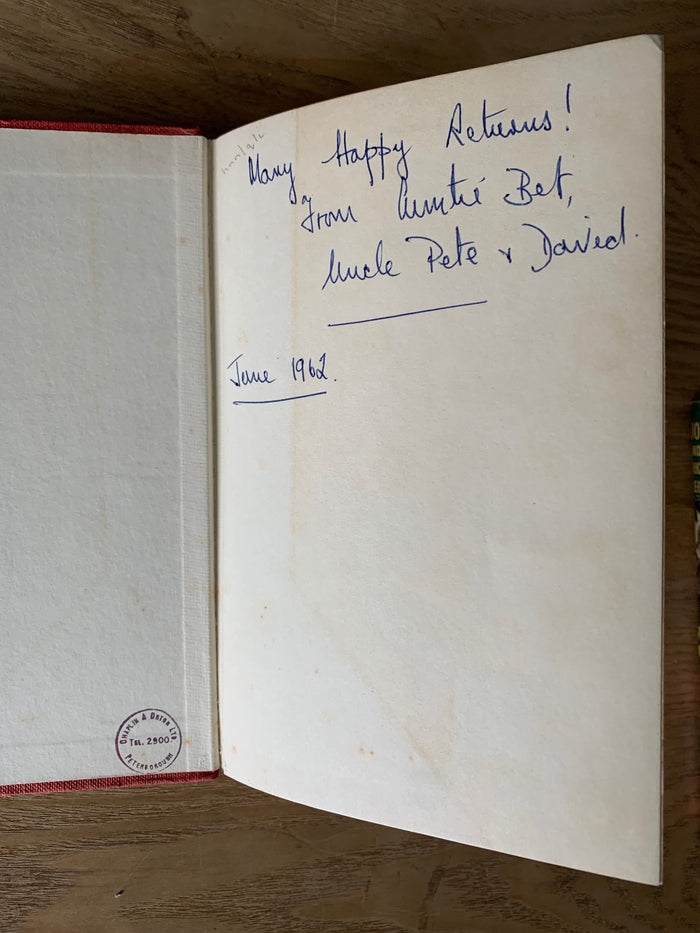 Many Happy Returns!
From Auntie Bet,
Uncle Pete & David.
June 1962.
CHAPLIN & DATON LTD.
TEL. 2900
PETERBOROUGH